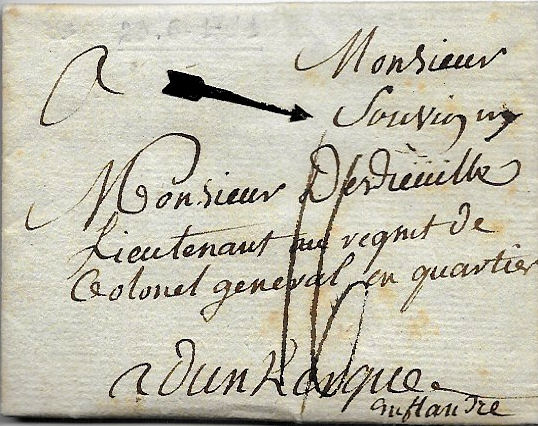 A
Monsieur
Souvigny
Monsieur Desdieuille
Lieutenant au regmt de
Colonel general en quartier
a dunkerque
en flandre